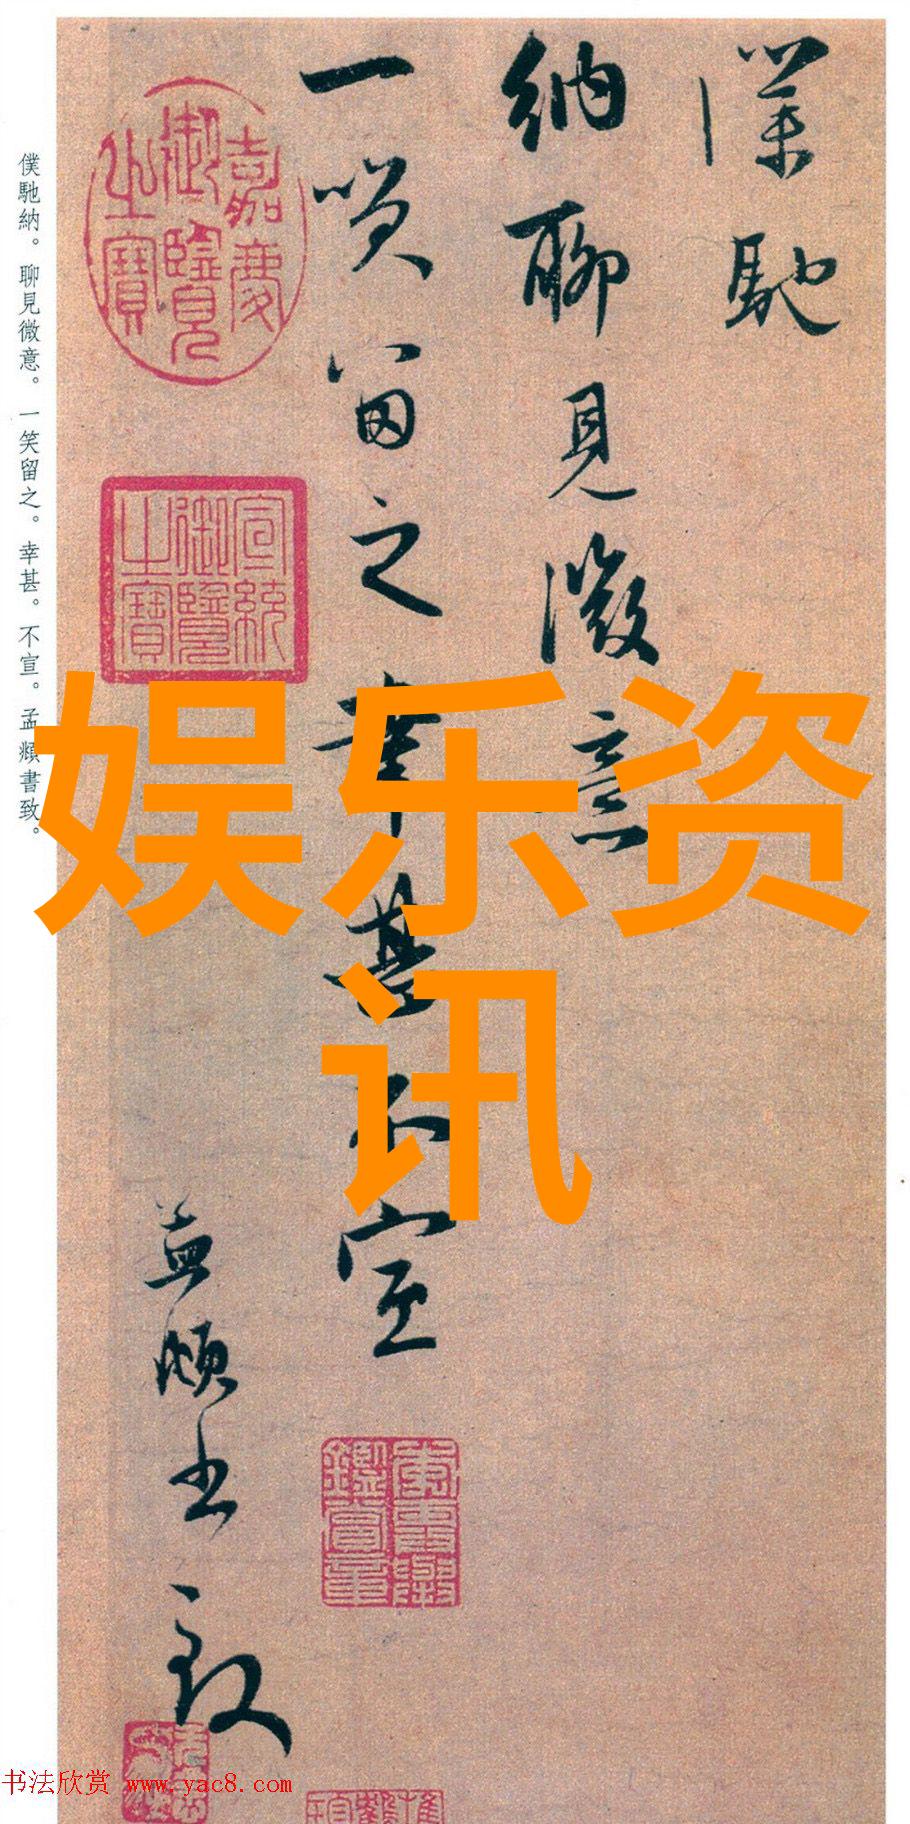 僕馳
納聊見微意
一笑留之幸甚不宣
孟頫書致
嘉慶御覽之寶
宣統御覽之寶
僕馳納。聊見微意。一笑留之。幸甚。不宣。孟頫書致。
娱乐资
讯
书法欣赏 www.yac8.com